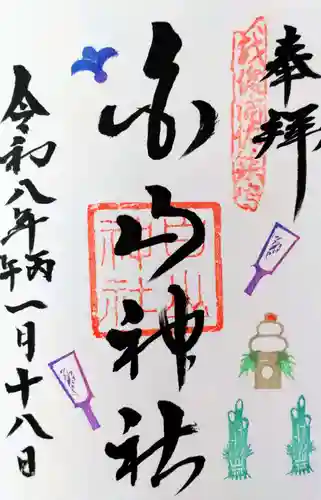 奉拝
白山神社
白山
神社
令和八年丙午一月十八日